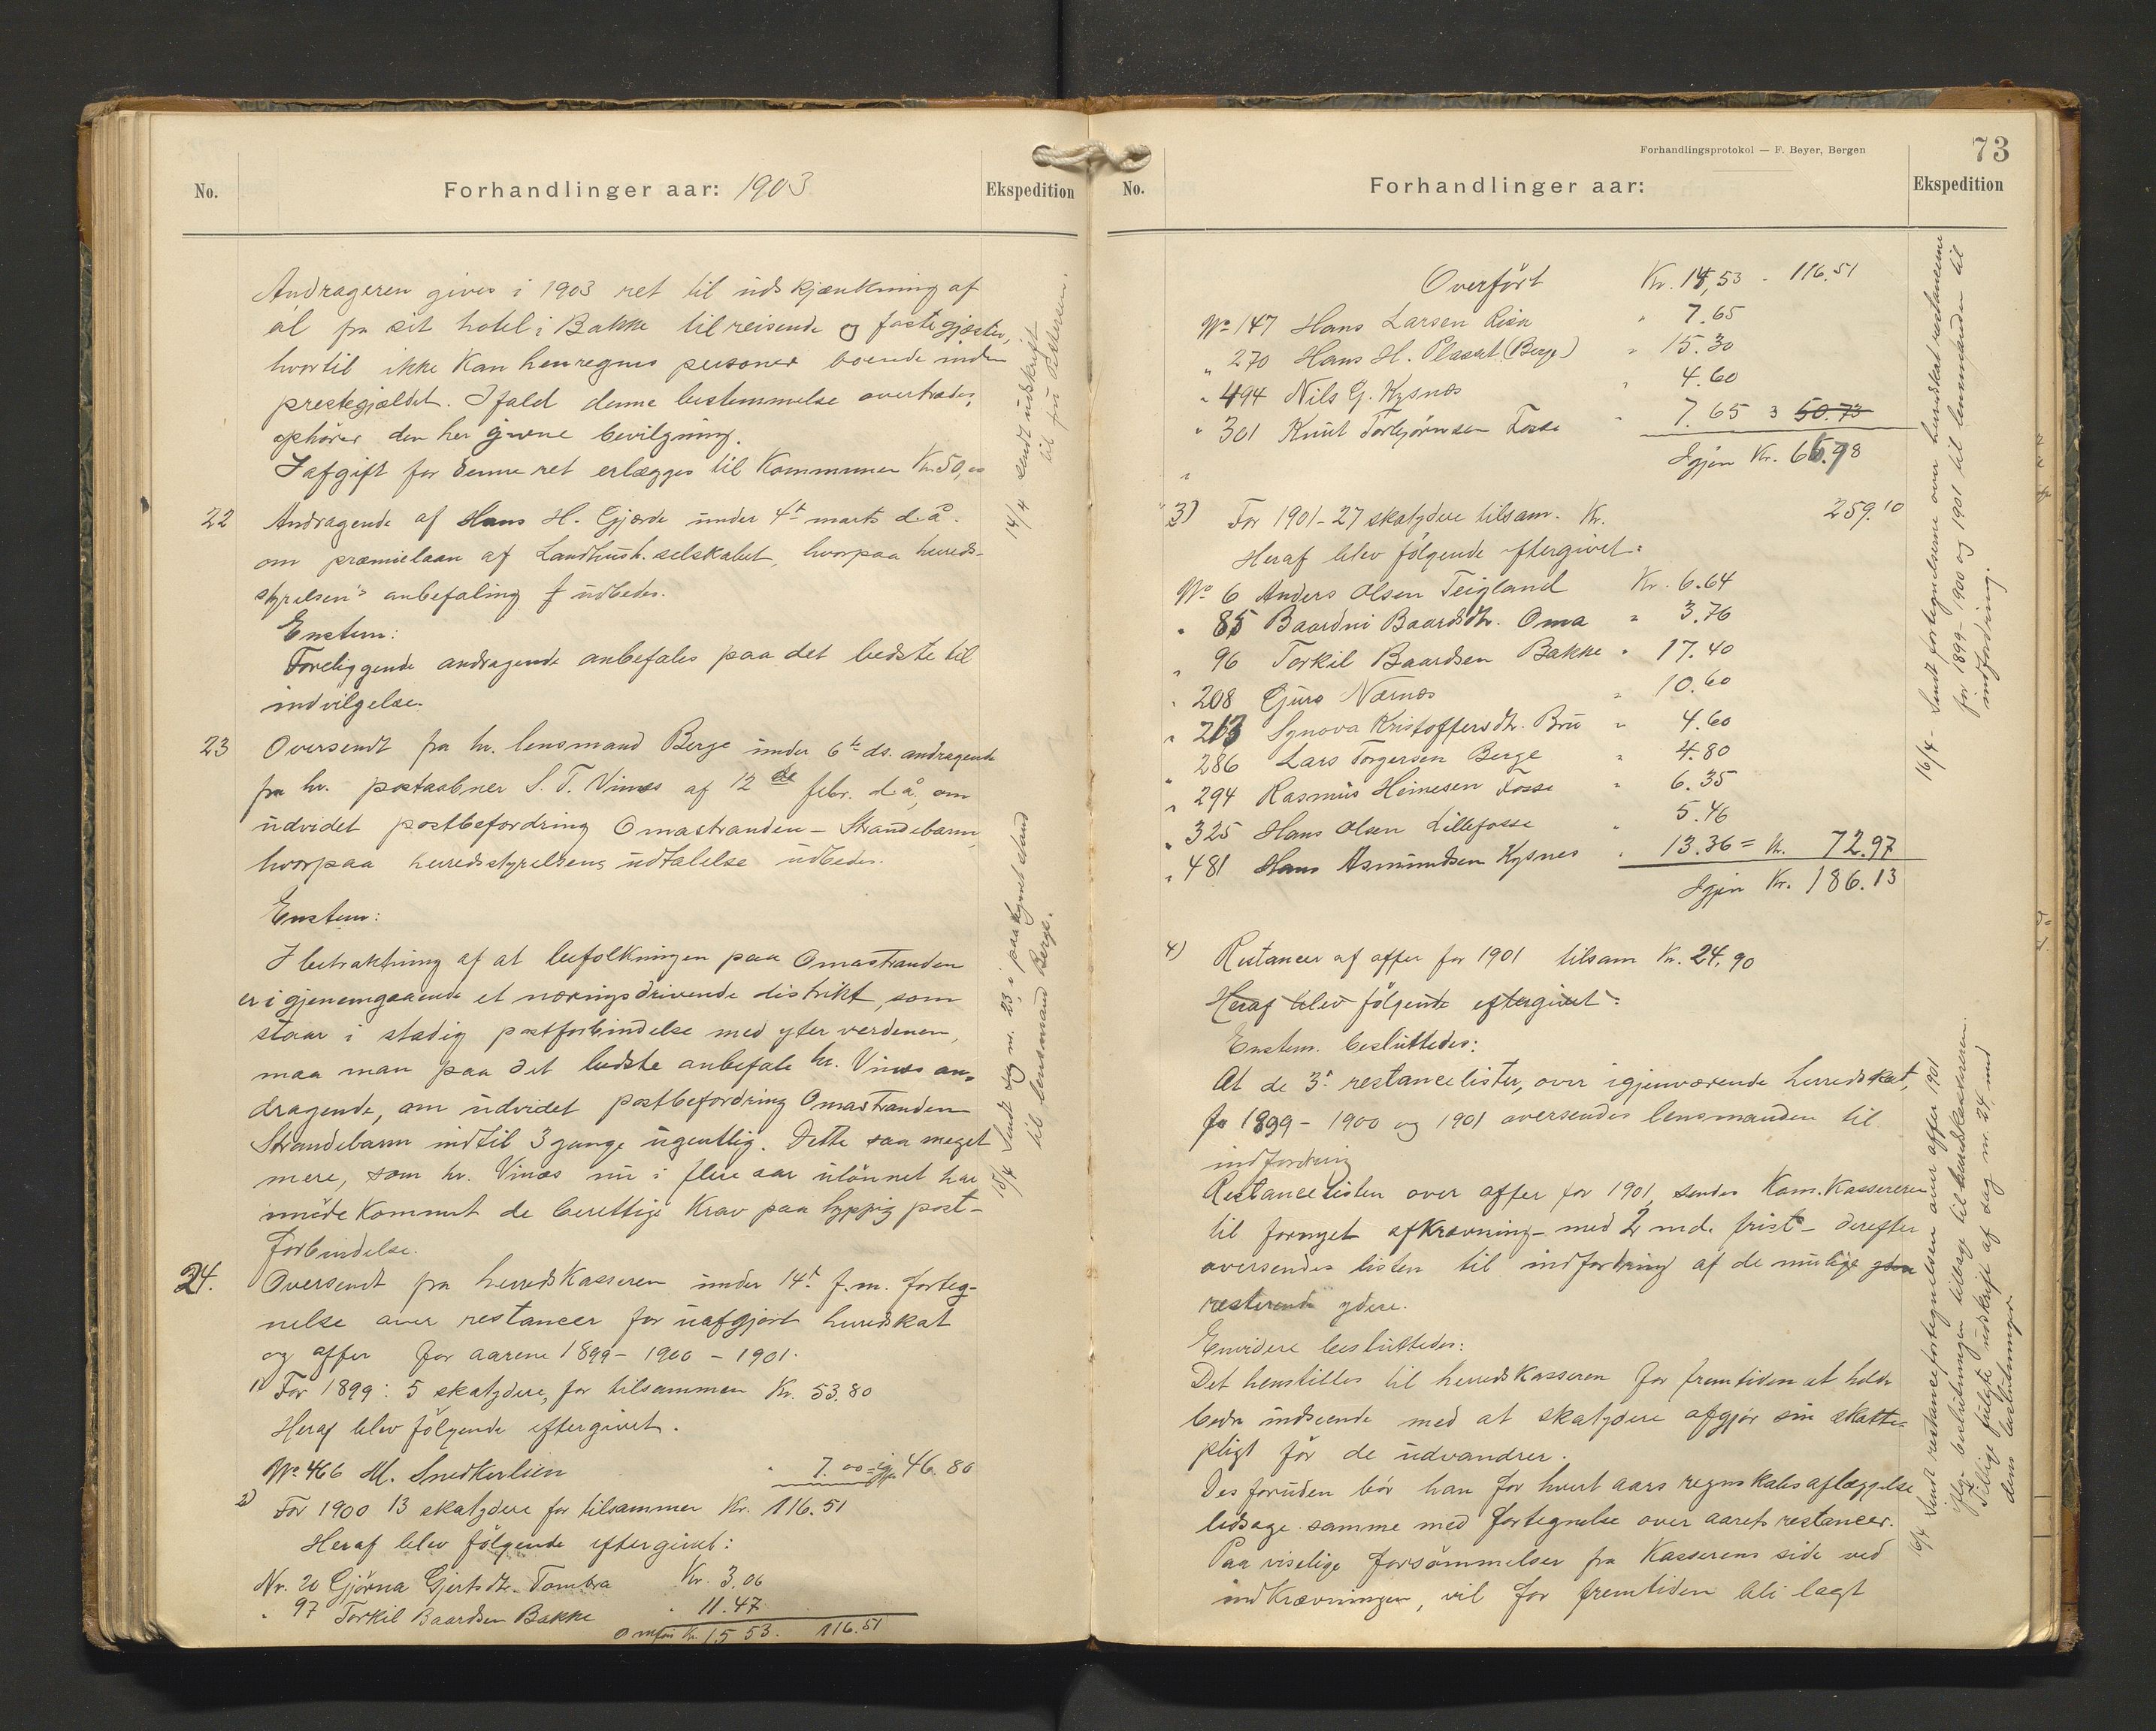 No.
Forhandlinger aar: 1903
Ekspedition
Andrageren gives i 1903 ret til udskjænkning af
øl fra sit hotel i Bakke til reisende og faste gjæster,
hvortil ikke kan henregnes personer boende inden
prestegjældet. Ifald denne bestemmelse overtrædes,
ophører den her givne bevilgning.
I afgift for denne ret erlægges til Kommunen Kr. 50,00
22 Andragende af Hans H. Gjerde under 4de marts d.å.
om præmielaan af Landhush. selskabet, hvorpaa hereds-
styrelsen's anbefaling udbedes.
Enstem:
Foreliggende andragende anbefales paa det bedste til
indvilgelse.
23 Oversendt fra hr. lensmand Berge under 6te ds. andragende
fra hr. postaabner S. T. Vinæs af 12 de febr. d.å, om
udvidet postbefordring Omastranden - Strandebarm,
hvorpaa herredsstyrelsens udtalelse udbedes.
Enstem:
I betraktning af at befolkningen paa Omastranden
er i gjenemgaaende et næringsdrivende distrikt, som
staar i stadig postforbindelse med yter verdenen,
maa man paa det bedste anbefale hr. Vinæs an-
dragende, om udvidet postbefordring Omastranden
Strandebarm indtil 3 gange ugentlig. Dette saa meget
mere, som hr. Vinæs nu i flere aar ulønnet har
imødekommet de berettige Krav paa hyppig post-
forbindelse.
24. Oversendt fra herredskasseren under 14de f.m. forteg-
nelse over restancer for uafgjort herredskat
og offer for aarene 1899 - 1900 - 1901.
1) For 1899: 5 skatydere, for tilsammen Kr. 53.80
Heraf blev følgende eftergivet.
No 466 M. Snedkerlien " 7.00 = igj. 46.80
2) For 1900 13 skatydere for tilsammen Kr. 116.51
Heraf blev følgende eftergivet:
Nr. 20 Gjørna Gjertsdtr. Tombra Kr. 3.06
" 97 Torkil Baardsen Bakke " 11.47
Omføri Kr. 15 53. 116.51
14/4 sendt udskrift
til fru Pettersen.
15/4 Sendt dag nr. 23, i paategnet stand
til lensmand Berge.
Forhandlingsprotokol — F. Beyer, Bergen
73
No.
Forhandlinger aar:
Ekspedition
Overført Kr. 14,53 - 116.51
No 147 Hans Larsen Lien " 7.65
" 270 Hans H. Plasset (Berge) " 15.30
" 494 Nils G. Kysnæs " 4.60
" 301 Knut Torbjørnsen Fosse " 7.65 = 50.73
Igjen Kr. 65.78
3) For 1901 - 27 skatydere tilsam. Kr. 259.10
Heraf blev følgende eftergivet:
No 6 Anders Olsen Teigland Kr. 6.64
" 85 Baardni Baardsdtr. Oma " 3.76
" 96 Torkil Baardsen Bakke " 17.40
" 208 Guro Nernæs " 10.60
" 213 Synova Kristoffersdtr. Bru " 4.60
" 286 Lars Torgersen Berge " 4.80
" 294 Rasmus Heinesen Fosse " 6.35
" 325 Hans Olsen Lillefosse " 5.46
" 481 Hans Asmundsen Kysnes " 13.36 = Kr. 72.97
Igjen Kr. 186.13
4) Restancer af offer for 1901 tilsam Kr. 24.90
Heraf blev følgende eftergivet:
Enstem. besluttedes:
At de 3de restancelister, over igjenværende herredskat,
fo 1899 - 1900 og 1901 oversendes lensmanden til
indfordring
Restancelisten over offer for 1901, sendes Kom. Kassereren
til fornyet afkrævning - med 2 md. frist - derefter
oversendes listen til indfordring af de mulige
resterende ydere.
Envidere besluttedes:
Det henstilles til herredskasseren for fremtiden at holde
bedre indseende med at skatydere afgjør sin skatte-
pligt før de udvandrer.
Des foruden bør han for hvert aars regnskabsaflæggelse
ledsage samme med fortegnelse over aarets restancer.
Paaviselige forsømmelser fra Kasserens side ved
indkrævningen, vil for fremtiden bli lagt
16/4 - Sendt fortegnelserne over herredskat restancerne
for 1899 - 1900 og 1901 til lensmanden til
indfordring.
16/4 Sendt restancefortegnelsen over offer 1901
efter beslutningen tillige til herredskassereren.
Tillige fulgte udskrift af dag nr. 24 med
dens beslutninger.